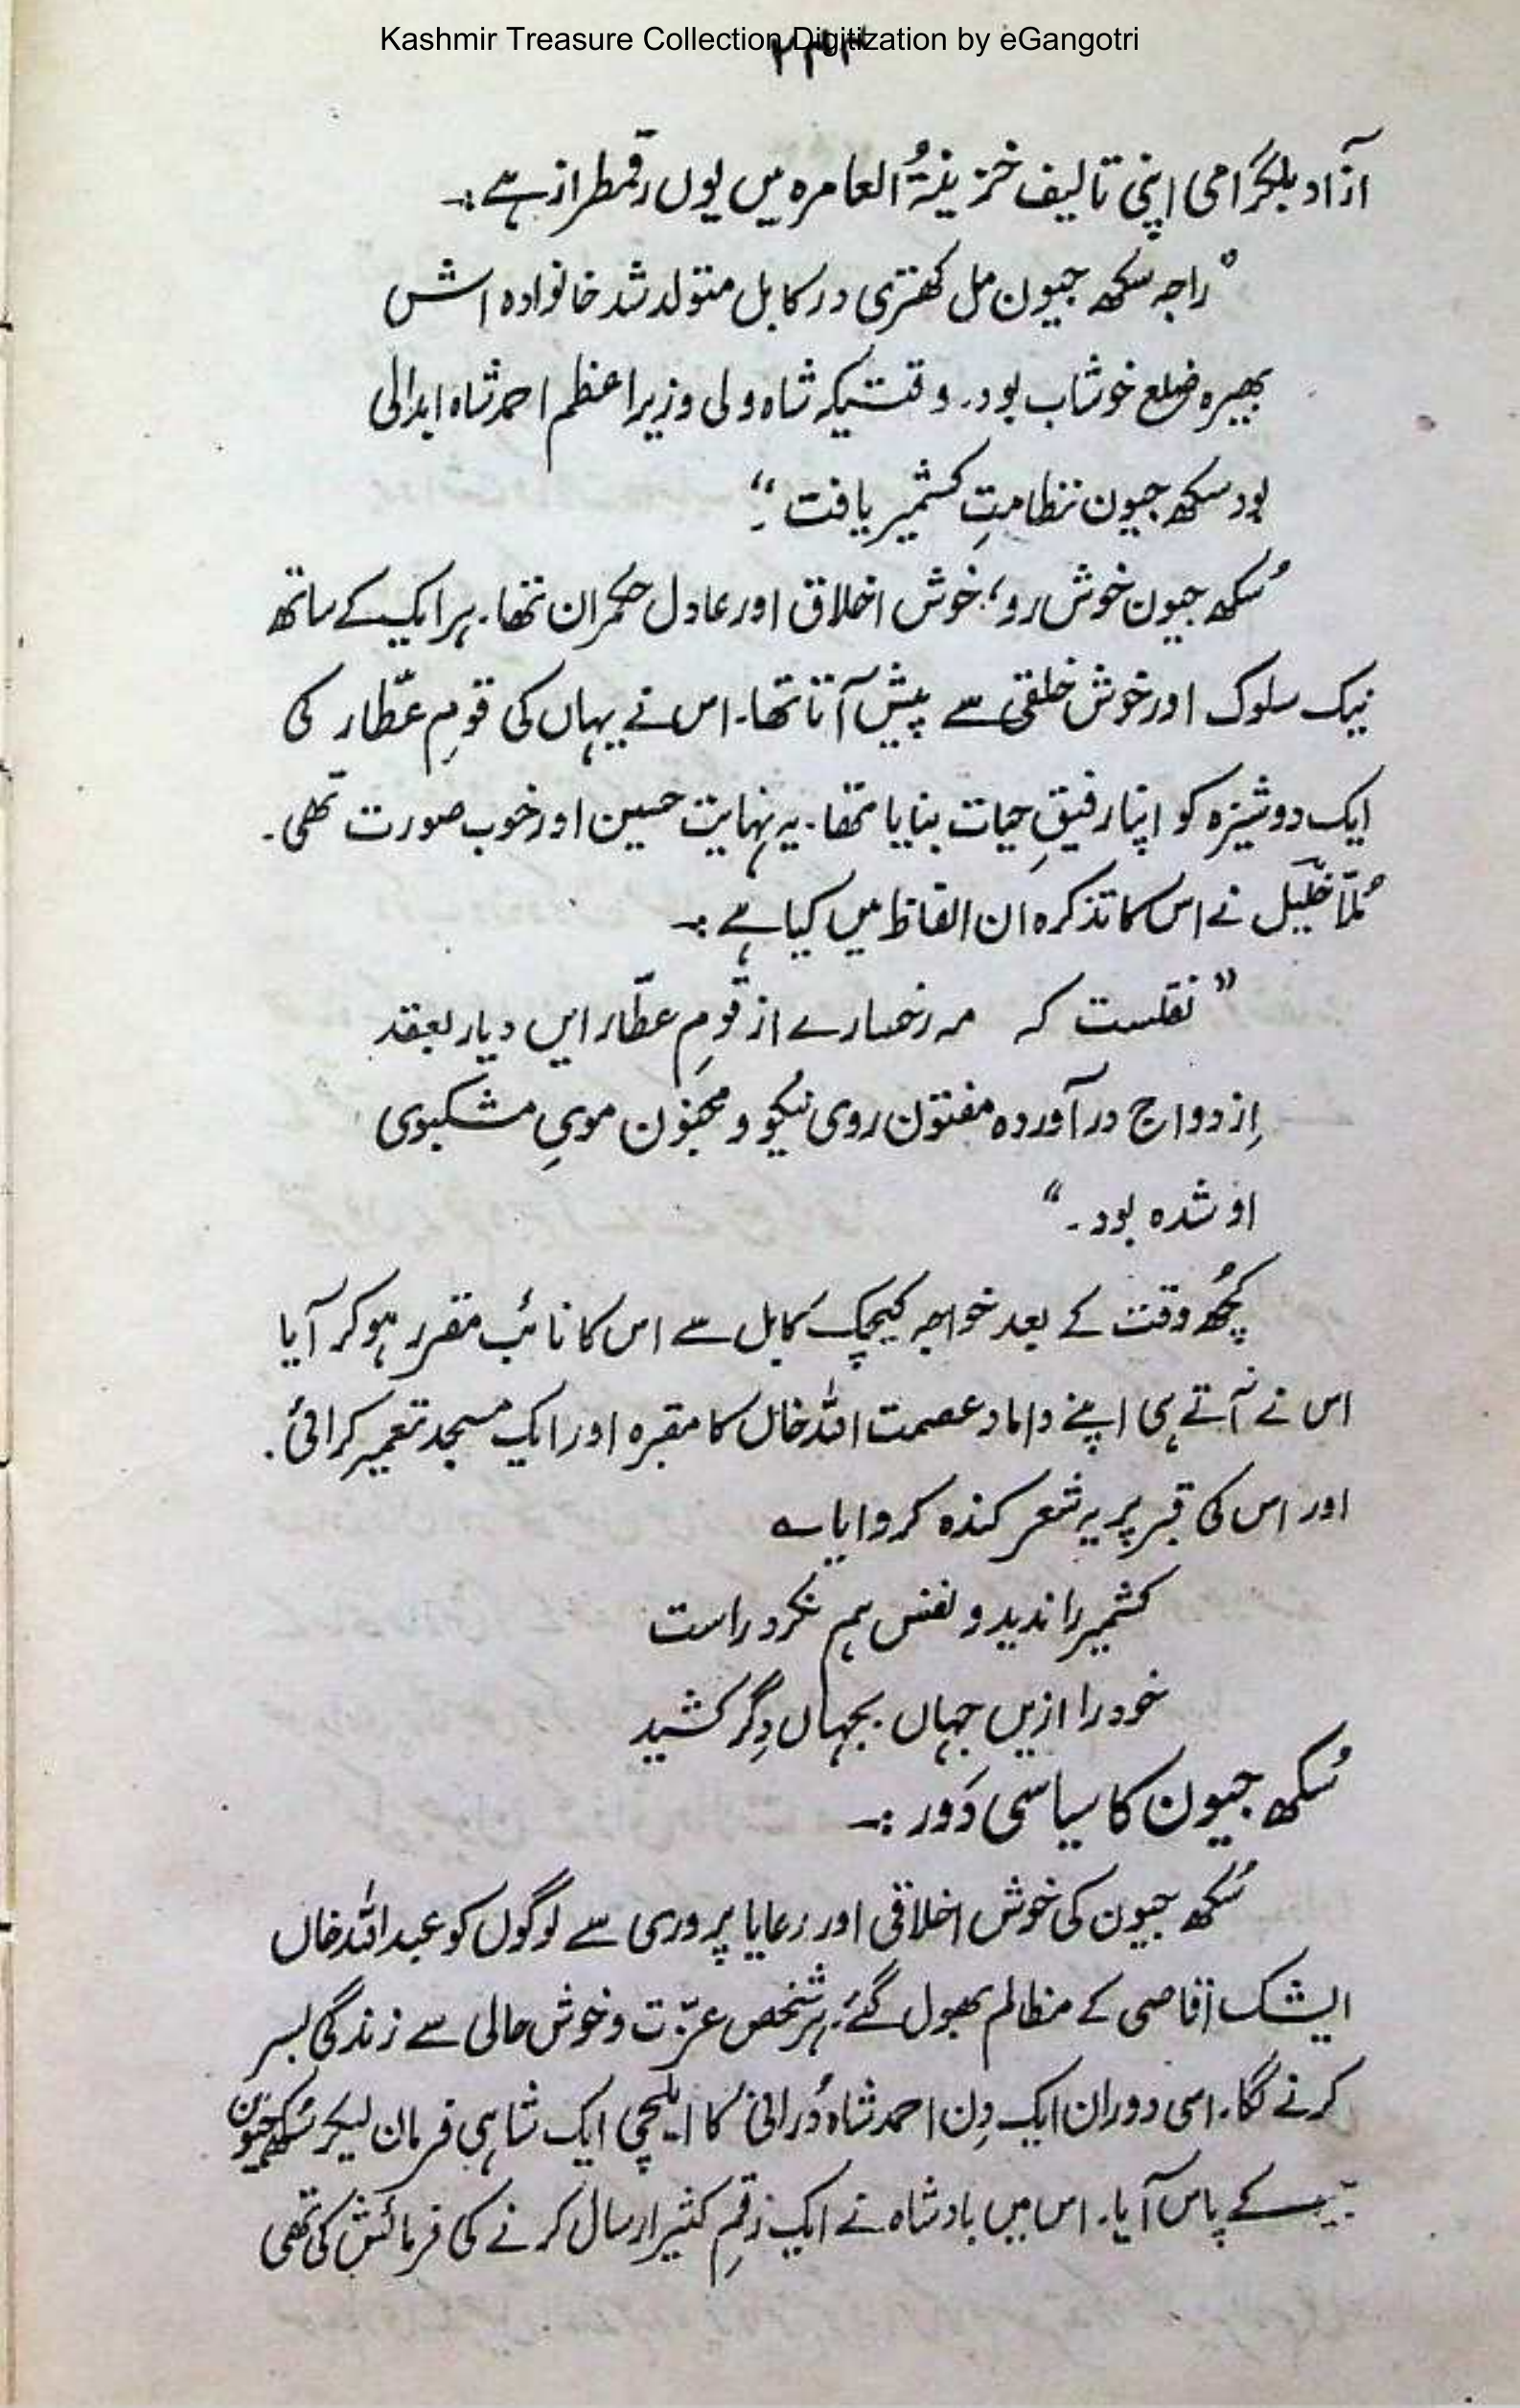 Kashmir Treasure Collection Digitization by eGangotri
آزاد بلگرامی اپنی تالیف خزینۃُ العامرہ میں یوں رقمطراز ہے :۔
"راجہ سکھ جیون مل کھتری در کابل متولد شد خانوادہ اش
بھیرہ ضلع خوشاب بود۔ وقتیکہ شاہ ولی وزیر اعظم احمد شاہ ابدالی
بود سکھ جیون نظامتِ کشمیر یافت ۔"
سُکھ جیون خوش رو، خوش اخلاق اور عادل حکمران تھا۔ ہر ایک کے ساتھ
نیک سلوک اور خوش خلقی سے پیش آتا تھا۔ اس نے یہاں کی قومِ عطّار کی
ایک دوشیزہ کو اپنا رفیقِ حیات بنایا تھا۔ یہ نہایت حسین اور خوب صورت تھی۔
مُلّا خلیل نے اس کا تذکرہ ان الفاظ میں کیا ہے :۔
"نقلست کہ مہ رخسارے از قومِ عطّار ایں دیار بعقد
اِزدواج در آوردہ مفتون روی نیکو و مجنون مویِ مشکبوی
او شدہ بود۔"
کچُھ وقت کے بعد خواجہ کیجک کابل سے اس کا نائب مقرر ہو کر آیا
اس نے آتے ہی اپنے داماد عصمت اللہ خاں کا مقبرہ اور ایک مسجد تعمیر کرائی۔
اور اس کی قبر پر یہ شعر کندہ کروایا ؎
کشمیر را ندید و نفس ہم نکرد راست
خود را ازیں جہاں بجہاں دِگر کشید
سُکھ جیون کا سیاسی دَور :۔
سُکھ جیون کی خوش اخلاقی اور رعایا پروری سے لوگوں کو عبداللہ خاں
ایشک آقاصی کے مظالم بھول گئے۔ ہر شخص عزّت و خوش حالی سے زندگی بسر
کرنے لگا۔ اسی دوران ایک دِن احمد شاہ دُرانی کا ایلچی ایک شاہی فرمان لیکر سُکھ جیون
کے پاس آیا۔ اس میں بادشاہ نے ایک رقمِ کثیر ارسال کرنے کی فرمائش کی تھی